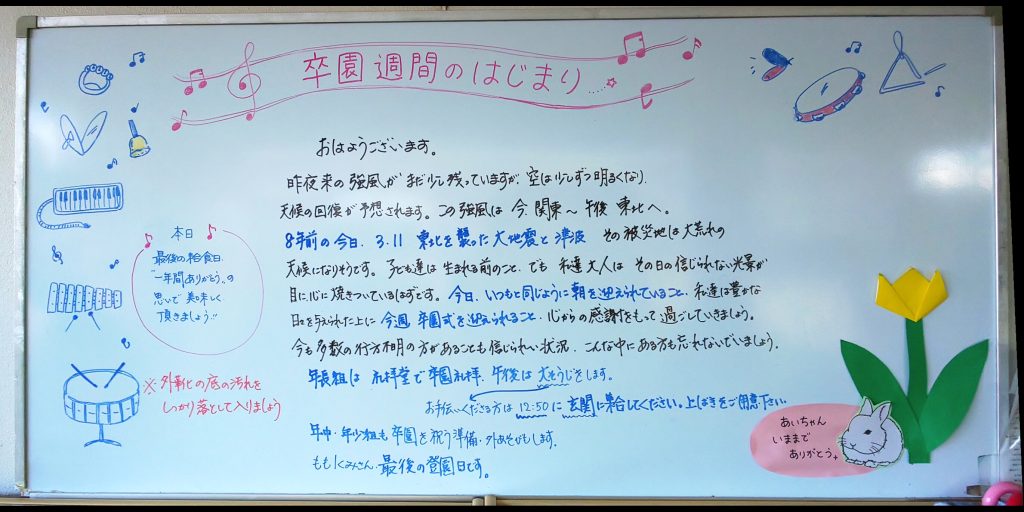 卒園週間のはじまり.....☆
おはようございます。
昨夜来の強風がまだ少し残っていますが、空は少しずつ明るくなり、
天候の回復が予想されます。この強風は今、関東〜午後東北へ。
8年前の今日、3.11 東北を襲った大地震と津波 その被災地は大荒れの
天候になりそうです。子ども達は生まれる前のこと、でも私達大人は その日の信じられない光景が
目に心に焼きついているはずです。今日、いつもと同じように朝を迎えられていること、私達は豊かな
日々を与えられた上に今週、卒園式を迎えられること、心からの感謝をもって過ごしていきましょう。
今も多数の行方不明の方があることも信じられない状況、こんな中にある方も忘れないでいましょう。
年長組は 礼拝堂で卒園礼拝、午後は大そうじをします。
お手伝いくださる方は 12:50に 玄関に集合してください。上ばきをご用意下さい
年中・年少組も卒園を祝う準備・外あそびもします。
ももぐみさん、最後の登園日です。
本日
最後の給食日、
"一年間ありがとう"の
思いで美味しく
頂きましょう!!
※外靴の底の汚れを
しっかり落として入りましょう
あいちゃん
いままで
ありがとう